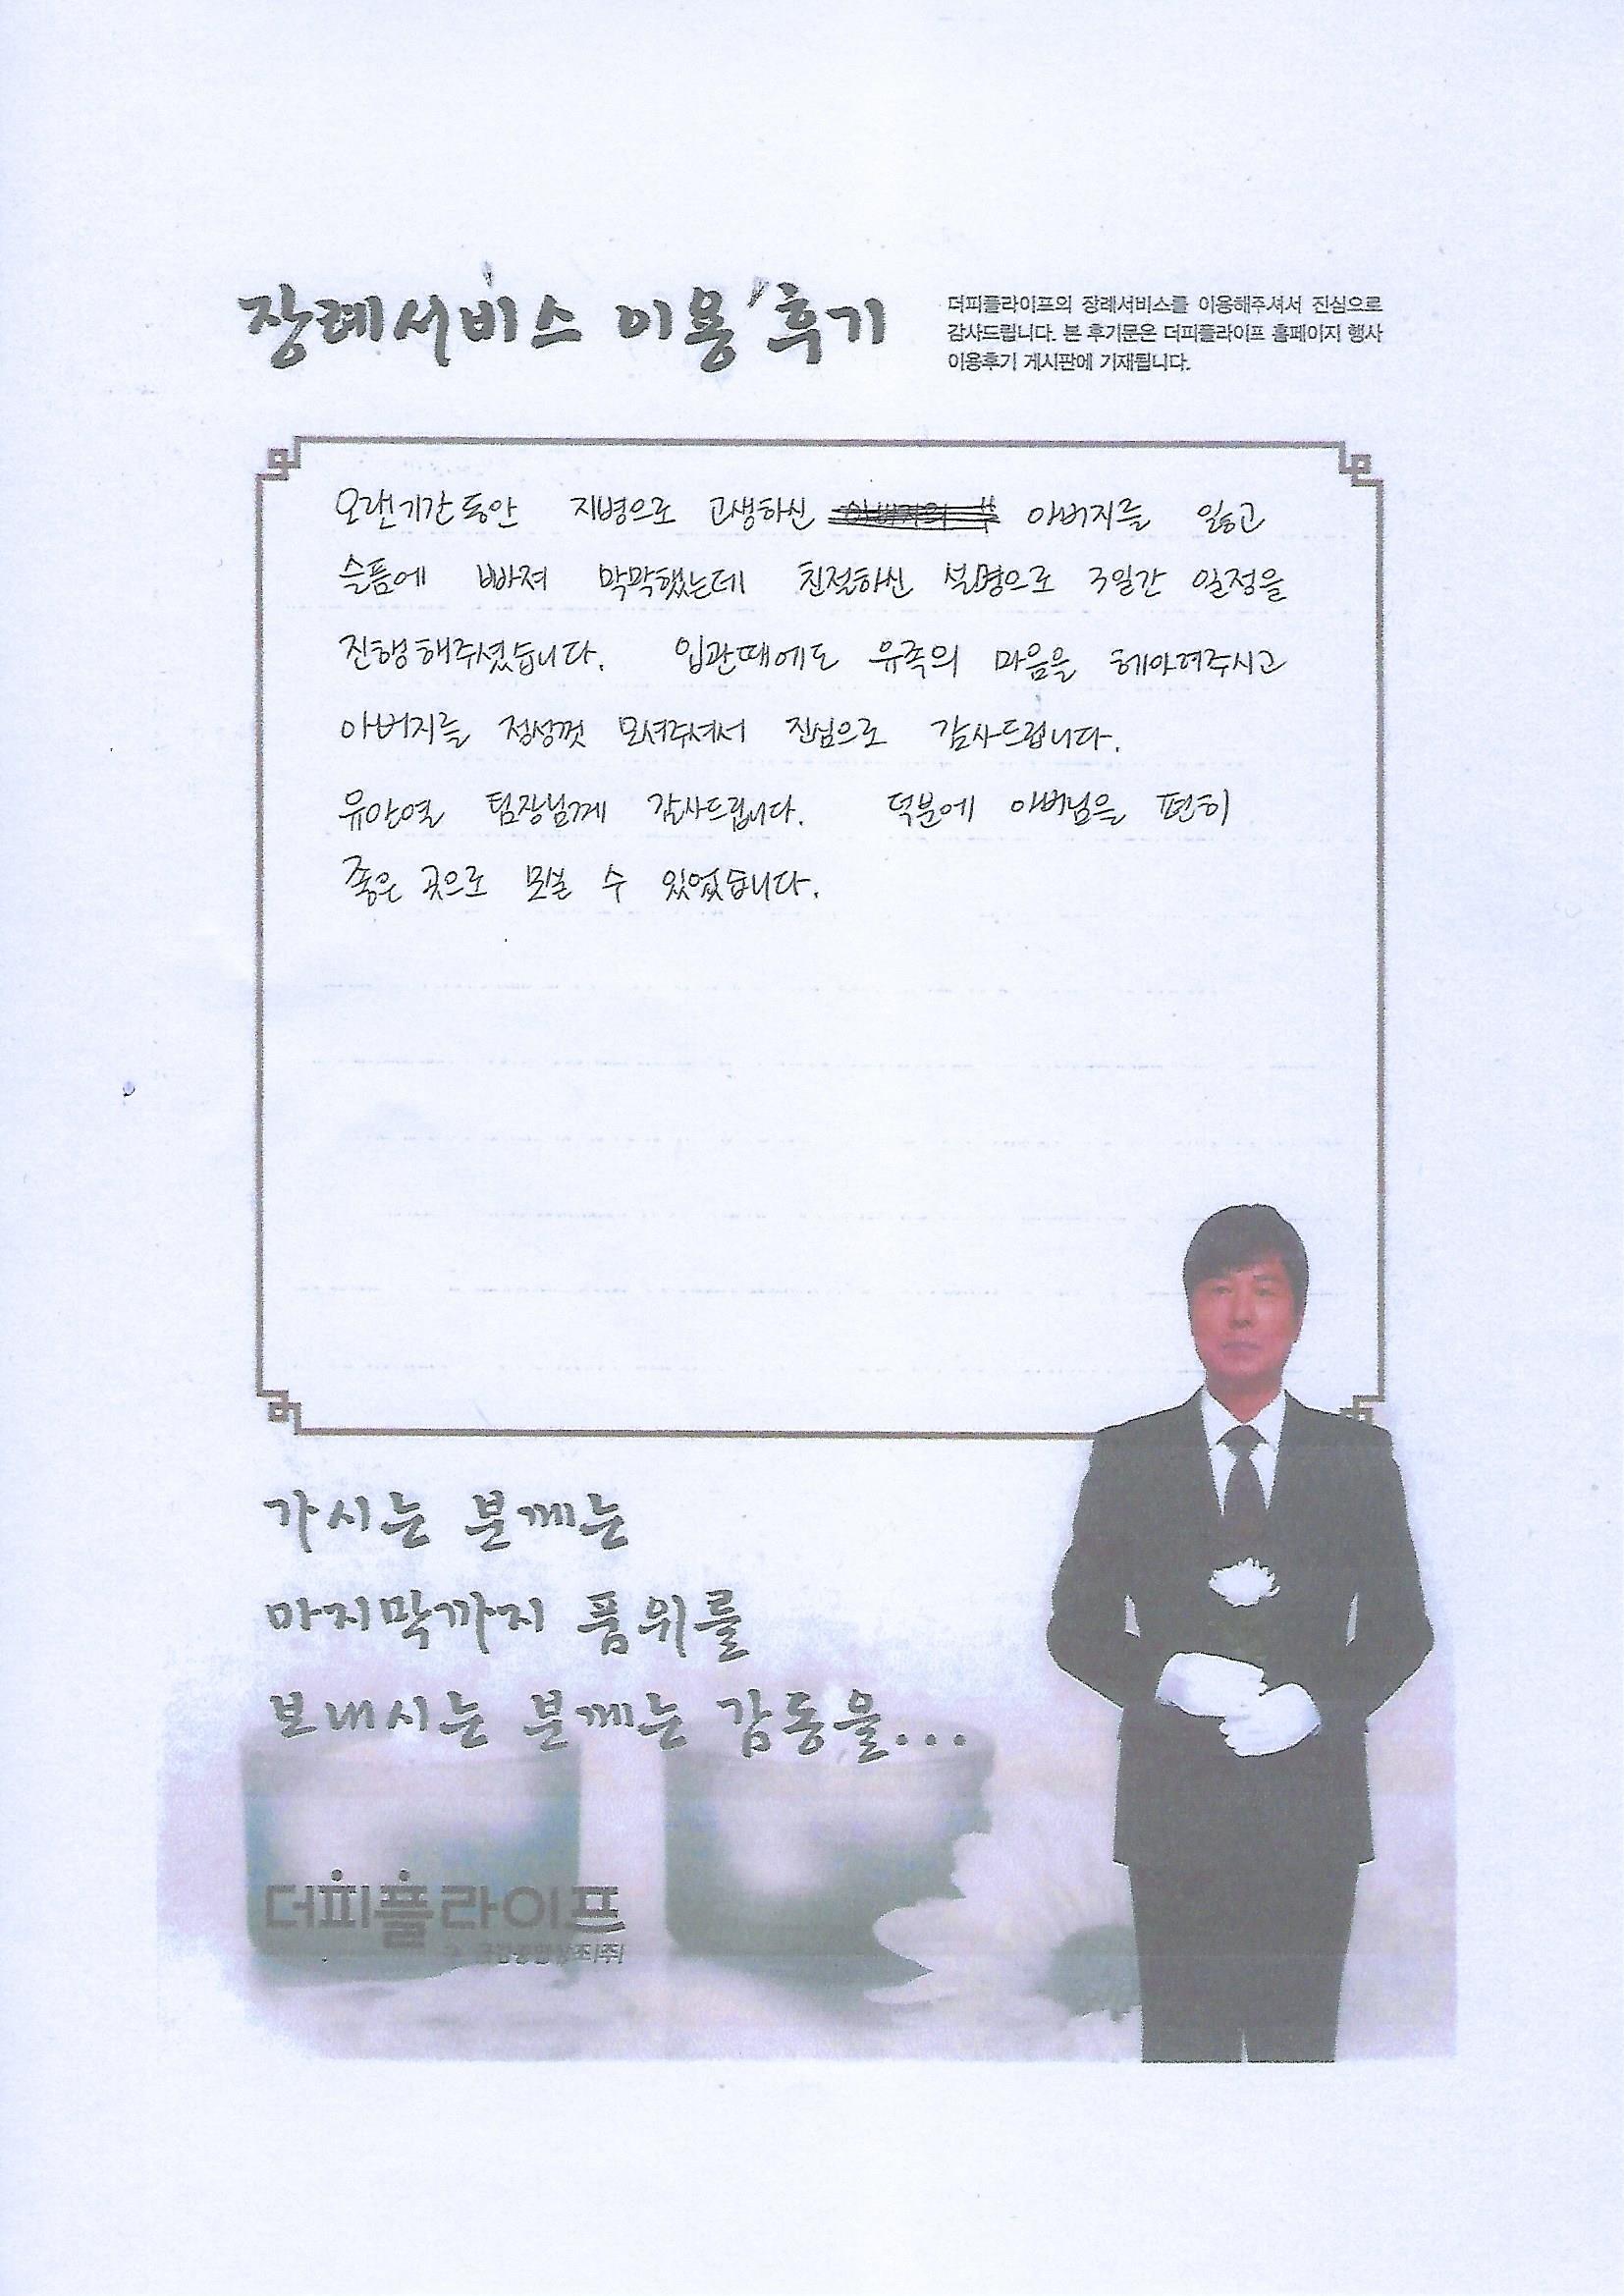 장례서비스 이용 후기
더피플라이프의 장례서비스를 이용해주셔서 진심으로
감사드립니다. 본 후기문은 더피플라이프 홈페이지 행사
이용후기 게시판에 기재됩니다.
오랜기간동안 지병으로 고생하신 아버지를 잃고
슬픔에 빠져 막막했는데 친절하신 설명으로 3일간 일정을
진행해주셨습니다. 입관때에도 유족의 마음을 헤아려주시고
아버지를 정성껏 모셔주셔서 진심으로 감사드립니다.
유안열 팀장님께 감사드립니다. 덕분에 아버님을 편히
좋은 곳으로 모실 수 있었습니다.
가시는 분께는
마지막까지 품위를
보내시는 분께는 감동을...
더피플라이프